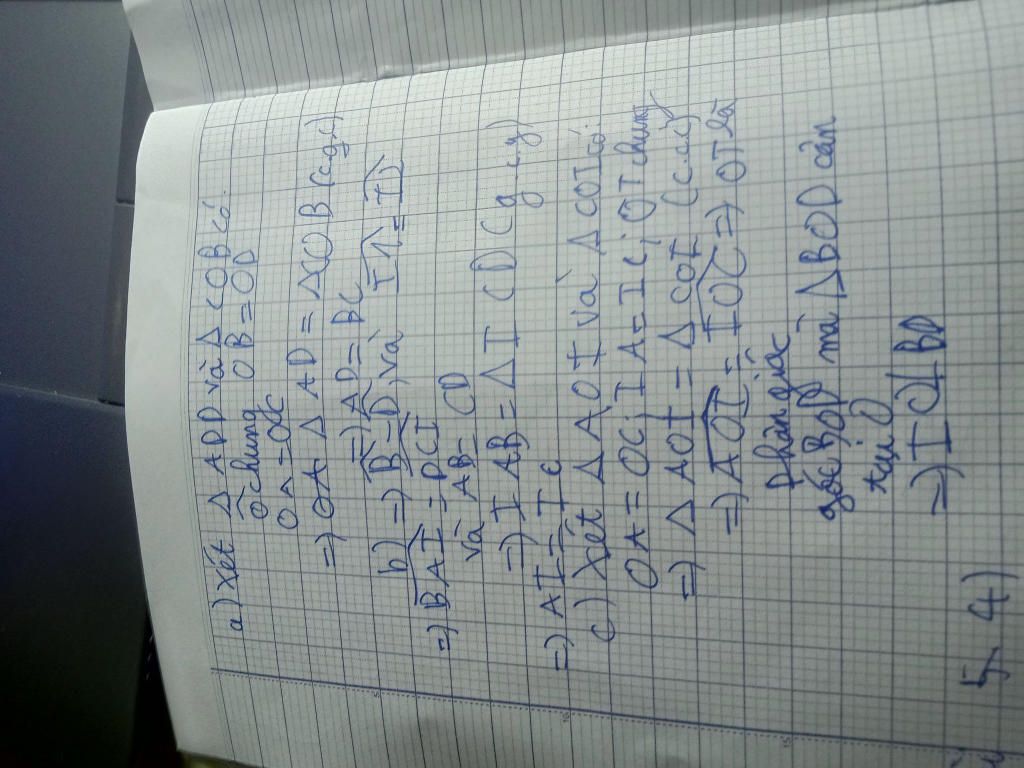 a) Xét Δ ADD và Δ COB có.
Ô chung OB = OD
OA = OC
=) OA Δ AD = ΔCOB (cgc)
=) AD = BC
b) =) B̂ = D̂, và IA = ID
=) BAI = DCI
và AB = CD
=) IAB = Δ ICD (g c g)
=) AI = IC
c) Xét Δ AOI và Δ COI có.
OA = OC; IA = IC; OI chung
=) Δ AOI = Δ COI (c.c.c)
=) AOI = IOC =) OI là
phân giác
góc BOD mà Δ BOD cân
tại O
=) IO⊥BD
5 4)